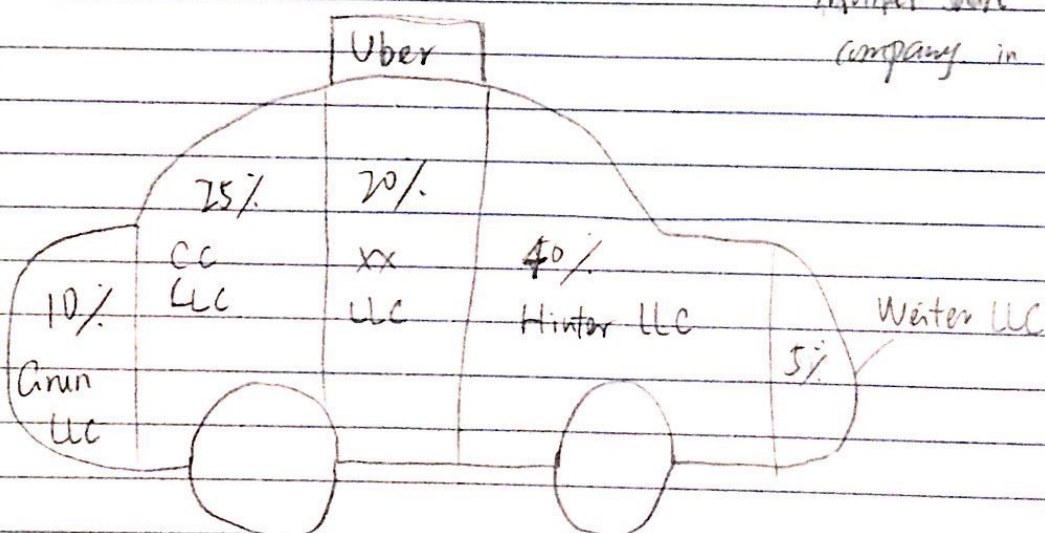 company in
Uber
25%
20%
CC
LLC
XX
LLC
40%
Hinter LLC
10%
LLC
5%
Weiter LLC